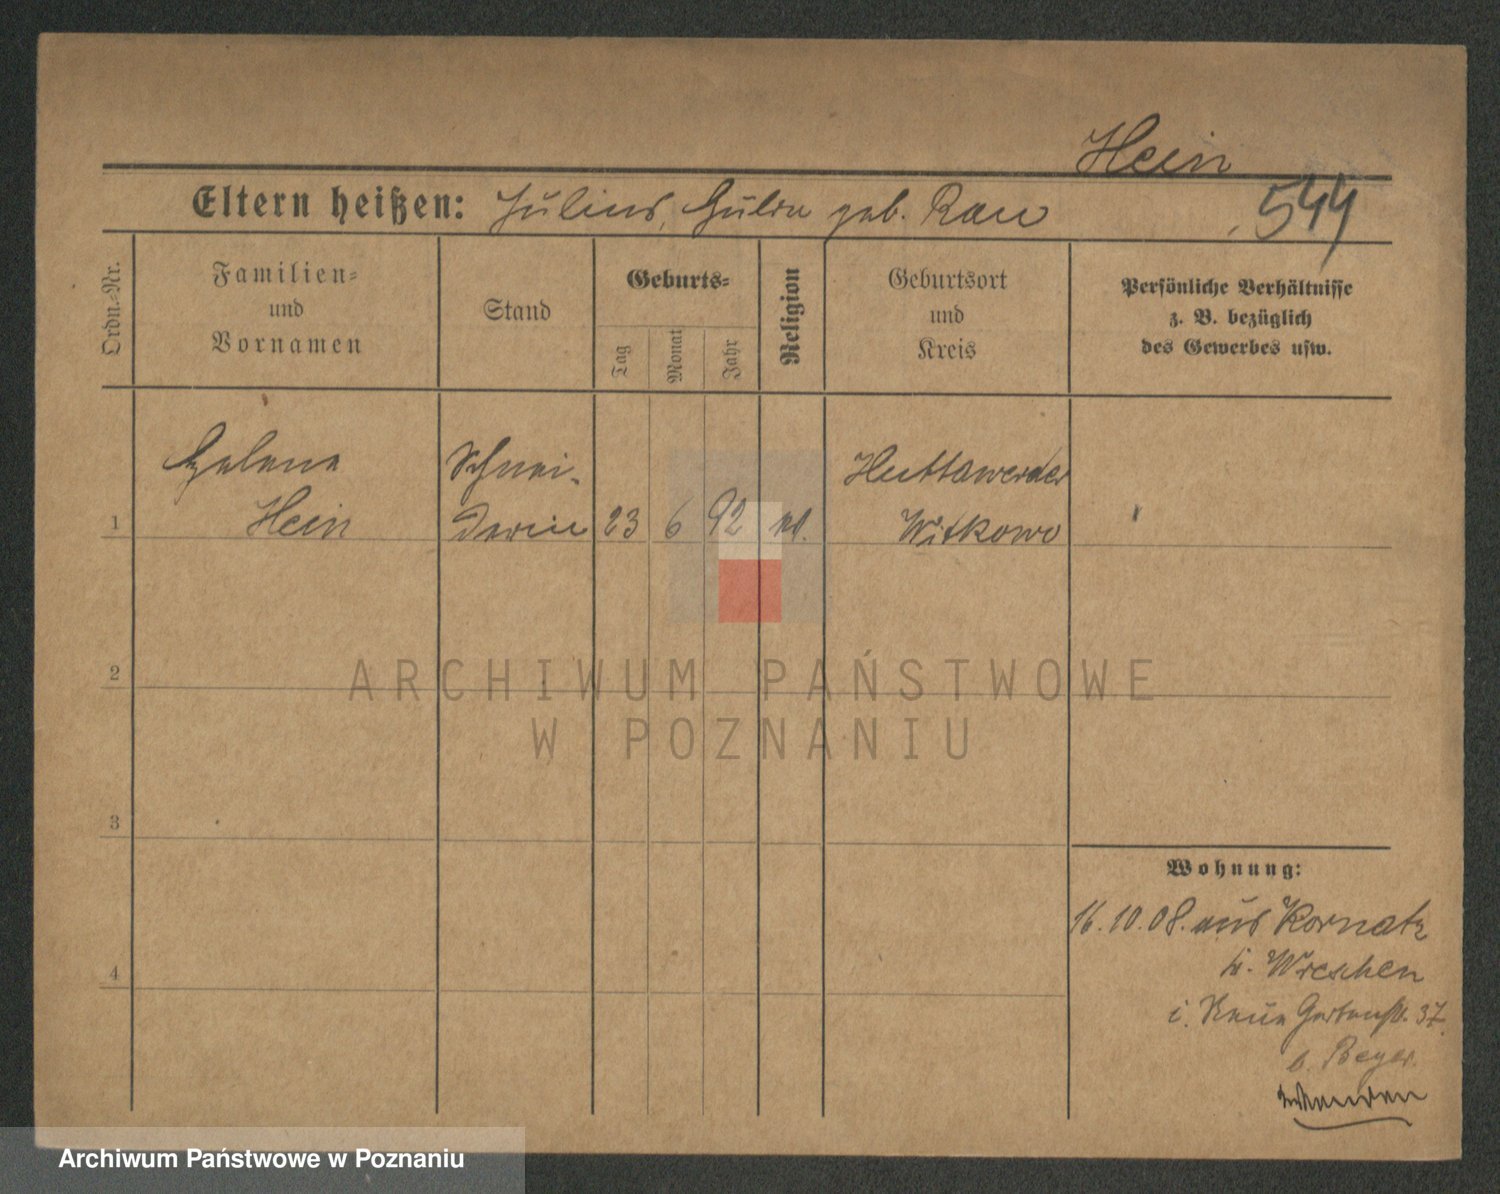 Hein
Eltern heißen: Julius, Hulda geb. Rau
544
Ordn.-Nr.
Familien-
und
Vornamen
Stand
Geburts-
Tag
Monat
Jahr
Religion
Geburtsort
und
Kreis
Persönliche Verhältnisse
z. B. bezüglich
des Gewerbes usw.
1
Helene
Hein
Schnei-
derin
23
6
92
Huttawerder
Witkowo
2
3
4
Wohnung:
16.10.08. aus Kornatz
Wreschen
i. Neue Gartenstr. 37.
b. Beyer.
wenden
ARCHIWUM PAŃSTWOWE
W POZNANIU
Archiwum Państwowe w Poznaniu